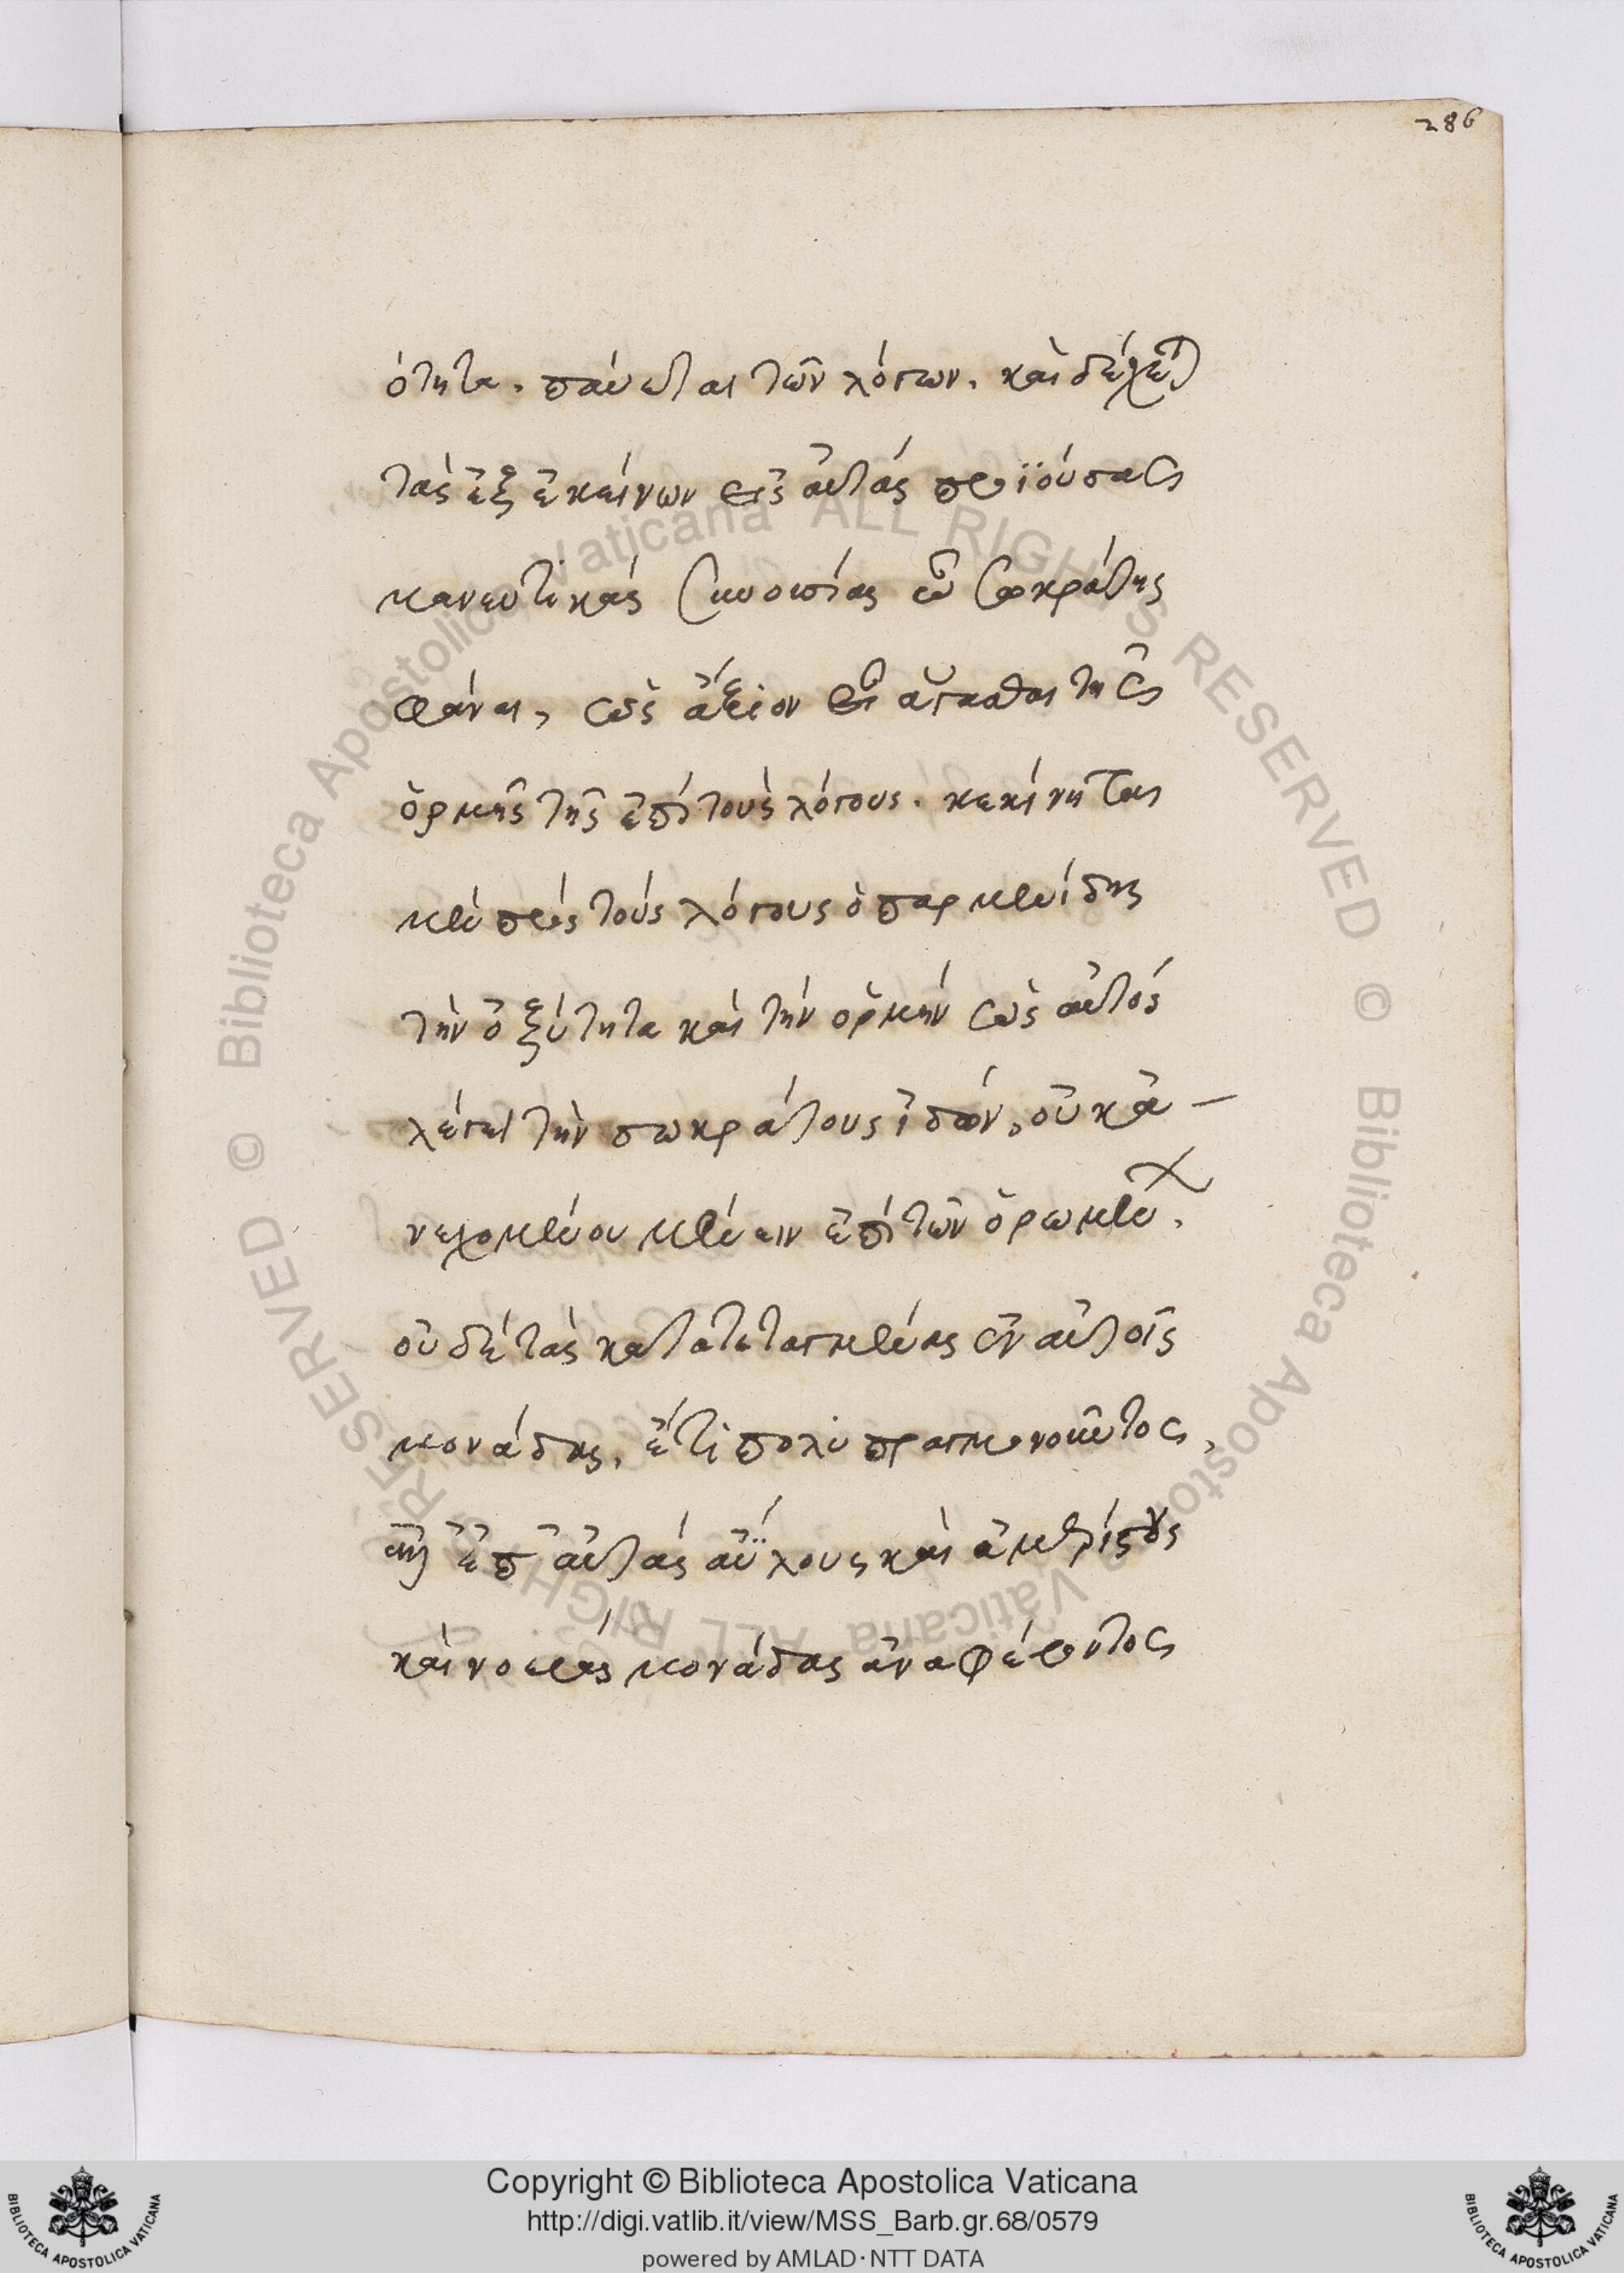 286
ότητα. παύεται τῶν λόγων. καὶ δέχετ
τὰς ἐξ ἐκείνων εἰς αὐτὰς προϊούσας
μανευτικὰς ὦ Σωκράτης
φάναι, ὡς ἄξιον εἶ ἄγασθαι τῆς
ὁρμῆς τῆς ἐπὶ τοὺς λόγους. κεκίνηται
μὲν πρὸς τοὺς λόγους ὁ παρμενίδης
τὴν ὀξύτητα καὶ τὴν ὁρμὴν ὡς αὐτὸς
λέγει τὴν σωκράτους ἰδών, οὐκ ἀ-
νεχομένου μένειν ἐπὶ τῶν ὁρωμέν.
οὐδὲ τὰς κατατεταγμένας ἐν αὐτοῖς
μονάδας, ἔτι πολυπραγμονοῦντος,
ἐπ αὐτὰς ἀΰλους καὶ ἀμερίστους
καὶ νοερὰς μονάδας ἀναφέροντος
Copyright © Biblioteca Apostolica Vaticana
http://digi.vatlib.it/view/MSS_Barb.gr.68/0579
powered by AMLAD·NTT DATA
BIBLIOTECA APOSTOLICA VATICANA
BIBLIOTECA APOSTOLICA VATICANA
© Biblioteca Apostolica Vaticana ALL RIGHTS RESERVED © Biblioteca Apostolica Vaticana ALL RIGHTS RESERVED